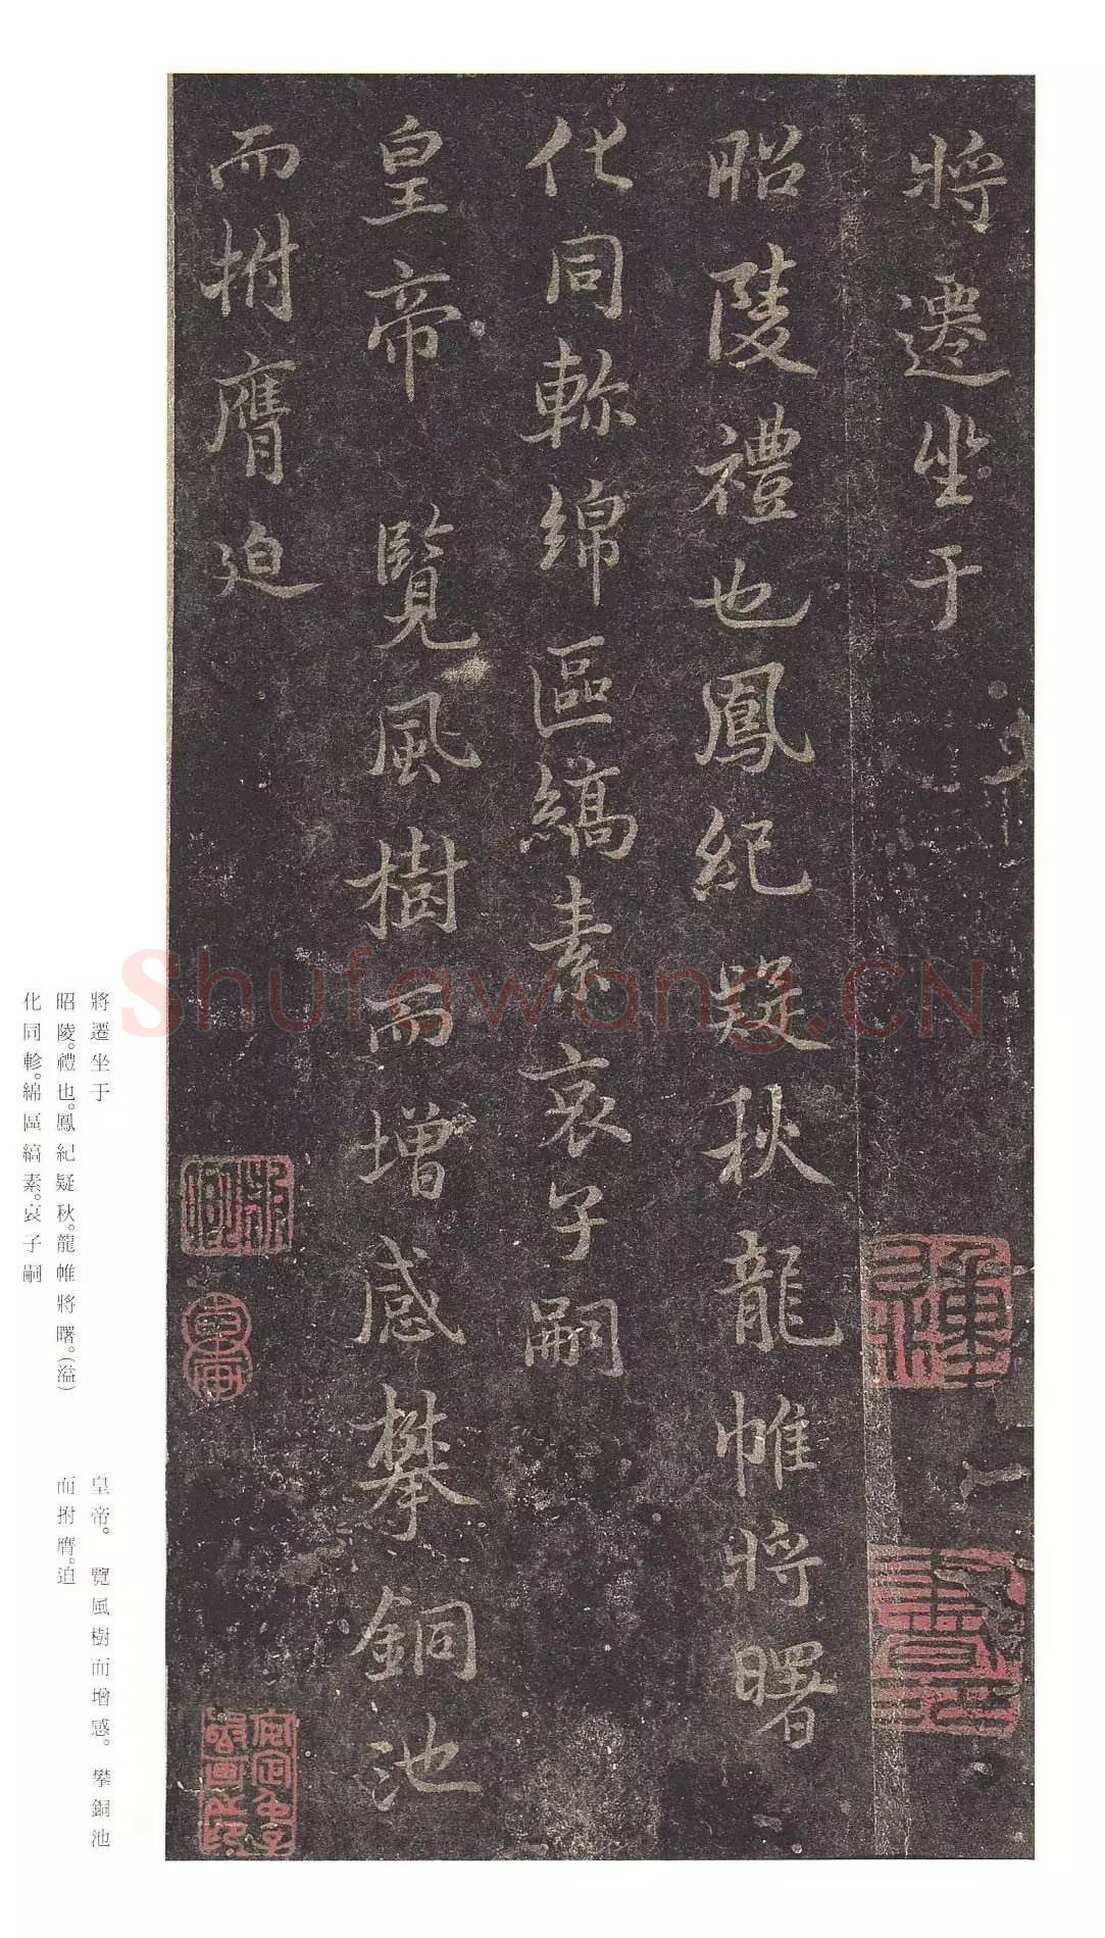 將遷坐于
昭陵禮也鳳紀疑秋龍帷將曙
化同軫綿區縞素哀子嗣
皇帝覽風樹而增感攀銅池
而拊膺迫
Shufawang.CN
將遷坐于
昭陵。禮也。鳳紀疑秋。龍帷將曙。(溢)
化同軫。綿區縞素。哀子嗣
皇帝。 覽風樹而增感。攀銅池
而拊膺。迫